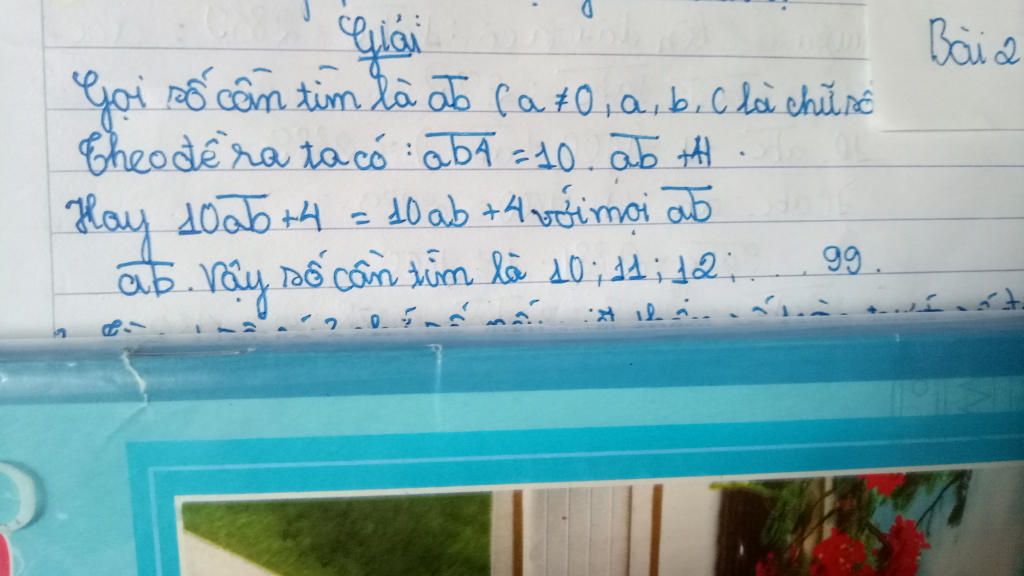 Giải
Bài 2
Gọi số cần tìm là ab (a ≠ 0, a, b, c là chữ số
Theo đề ra ta có : ab4 = 10 . ab + 4
Hay 10ab + 4 = 10ab + 4 với mọi ab
ab. Vậy số cần tìm là 10; 11; 12; ... 99.